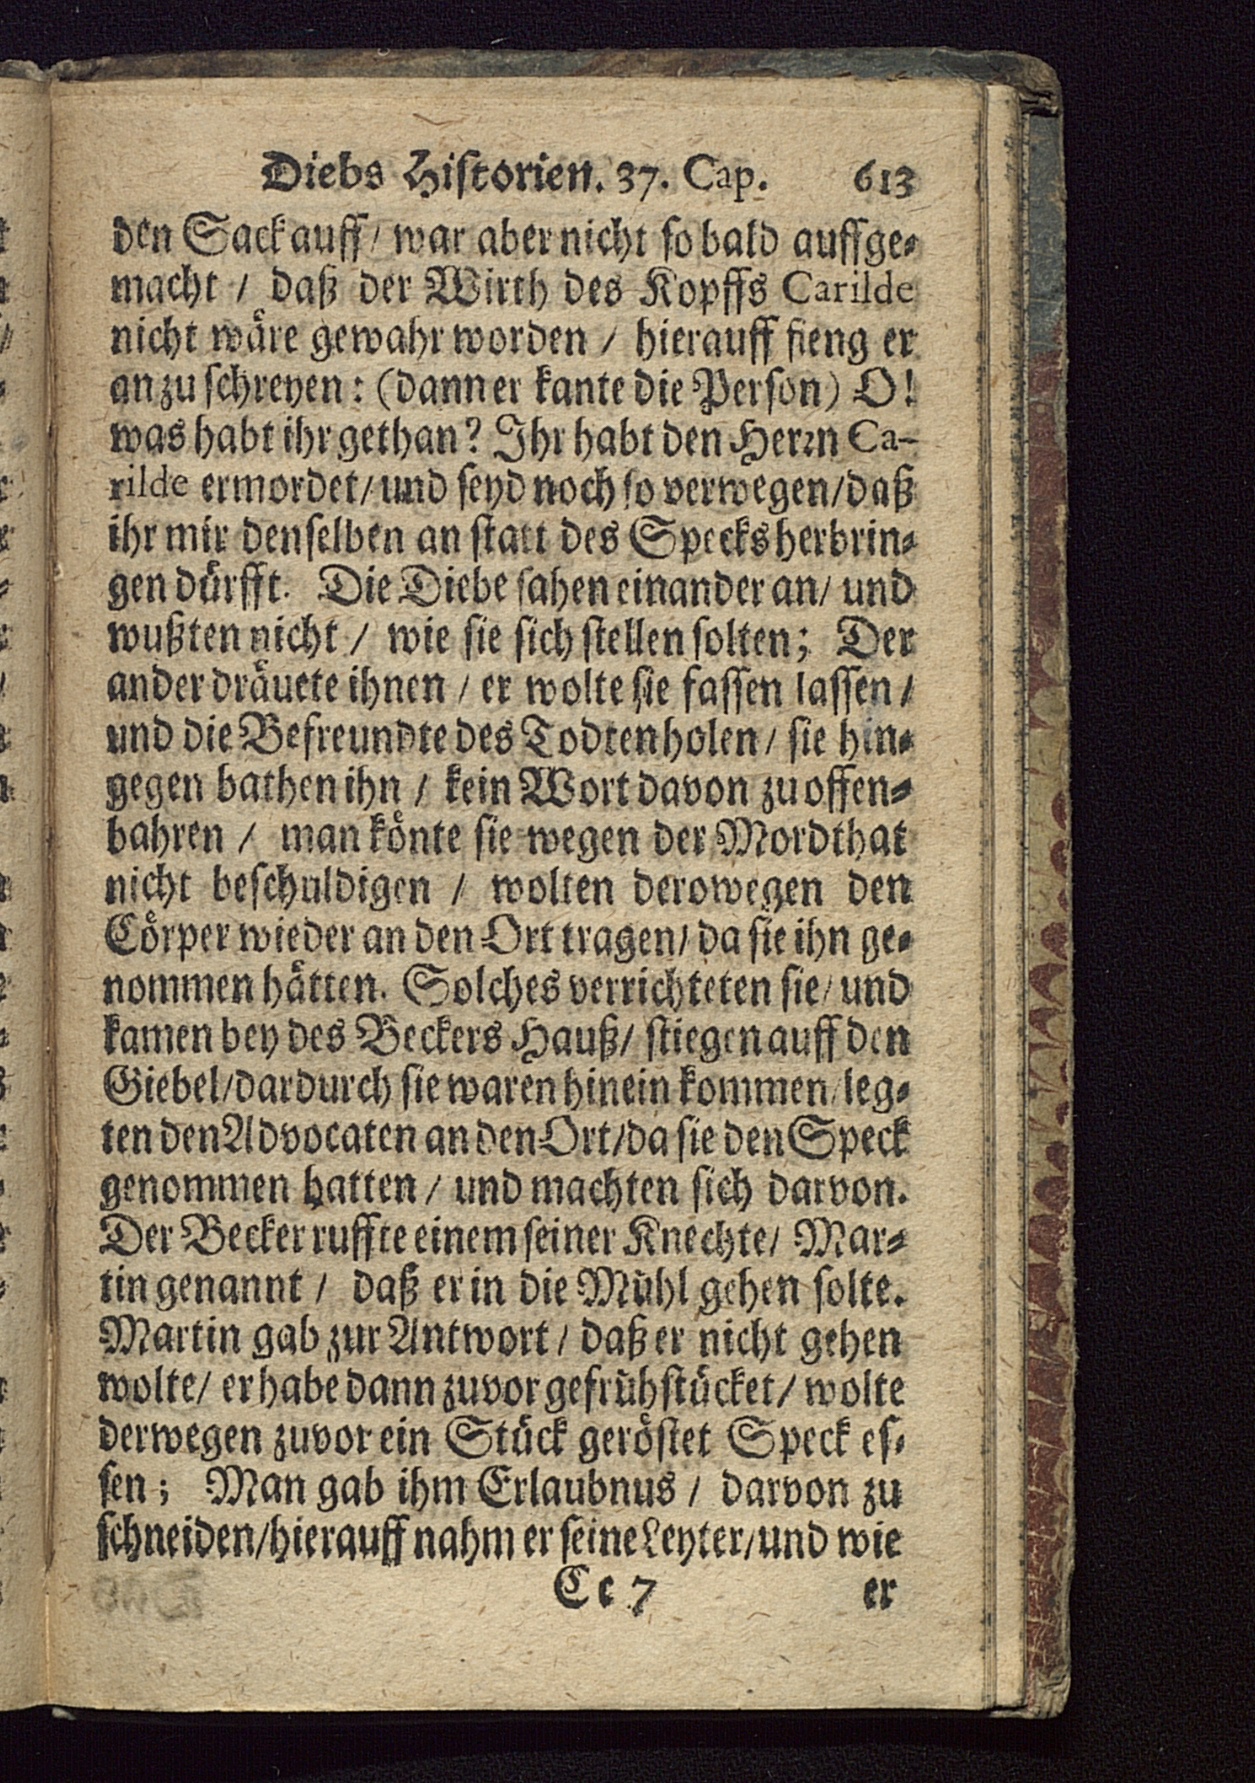 Diebs Historien. 37. Cap. 613
den Sack auff / war aber nicht so bald auffge-
macht / daß der Wirth des Kopffs Carilde
nicht wäre gewahr worden / hierauff fieng er
an zu schreyen: (dann er kante die Person) O!
was habt ihr gethan? Ihr habt den Herrn Ca-
rilde ermordet / und seyd noch so verwegen / daß
ihr mir denselben an statt des Specks herbrin-
gen dürfft. Die Diebe sahen einander an / und
wußten nicht / wie sie sich stellen solten; Der
ander dräuete ihnen / er wolte sie fassen lassen /
und die Befreundte des Todten holen / sie hin-
gegen bathen ihn / kein Wort davon zu offen-
bahren / man könte sie wegen der Mordthat
nicht beschuldigen / wolten derowegen den
Cörper wieder an den Ort tragen / da sie ihn ge-
nommen hätten. Solches verrichteten sie / und
kamen bey des Beckers Hauß / stiegen auff den
Giebel / dardurch sie waren hinein kommen / leg-
ten den Advocaten an den Ort / da sie den Speck
genommen hatten / und machten sich darvon.
Der Becker ruffte einem seiner Knechte / Mar-
tin genannt / daß er in die Mühl gehen solte.
Martin gab zur Antwort / daß er nicht gehen
wolte / er habe dann zuvor gefrühstücket / wolte
derwegen zuvor ein Stück geröstet Speck es-
sen; Man gab ihm Erlaubnus / darvon zu
schneiden / hierauff nahm er seine Leyter / und wie
Cc 7 er